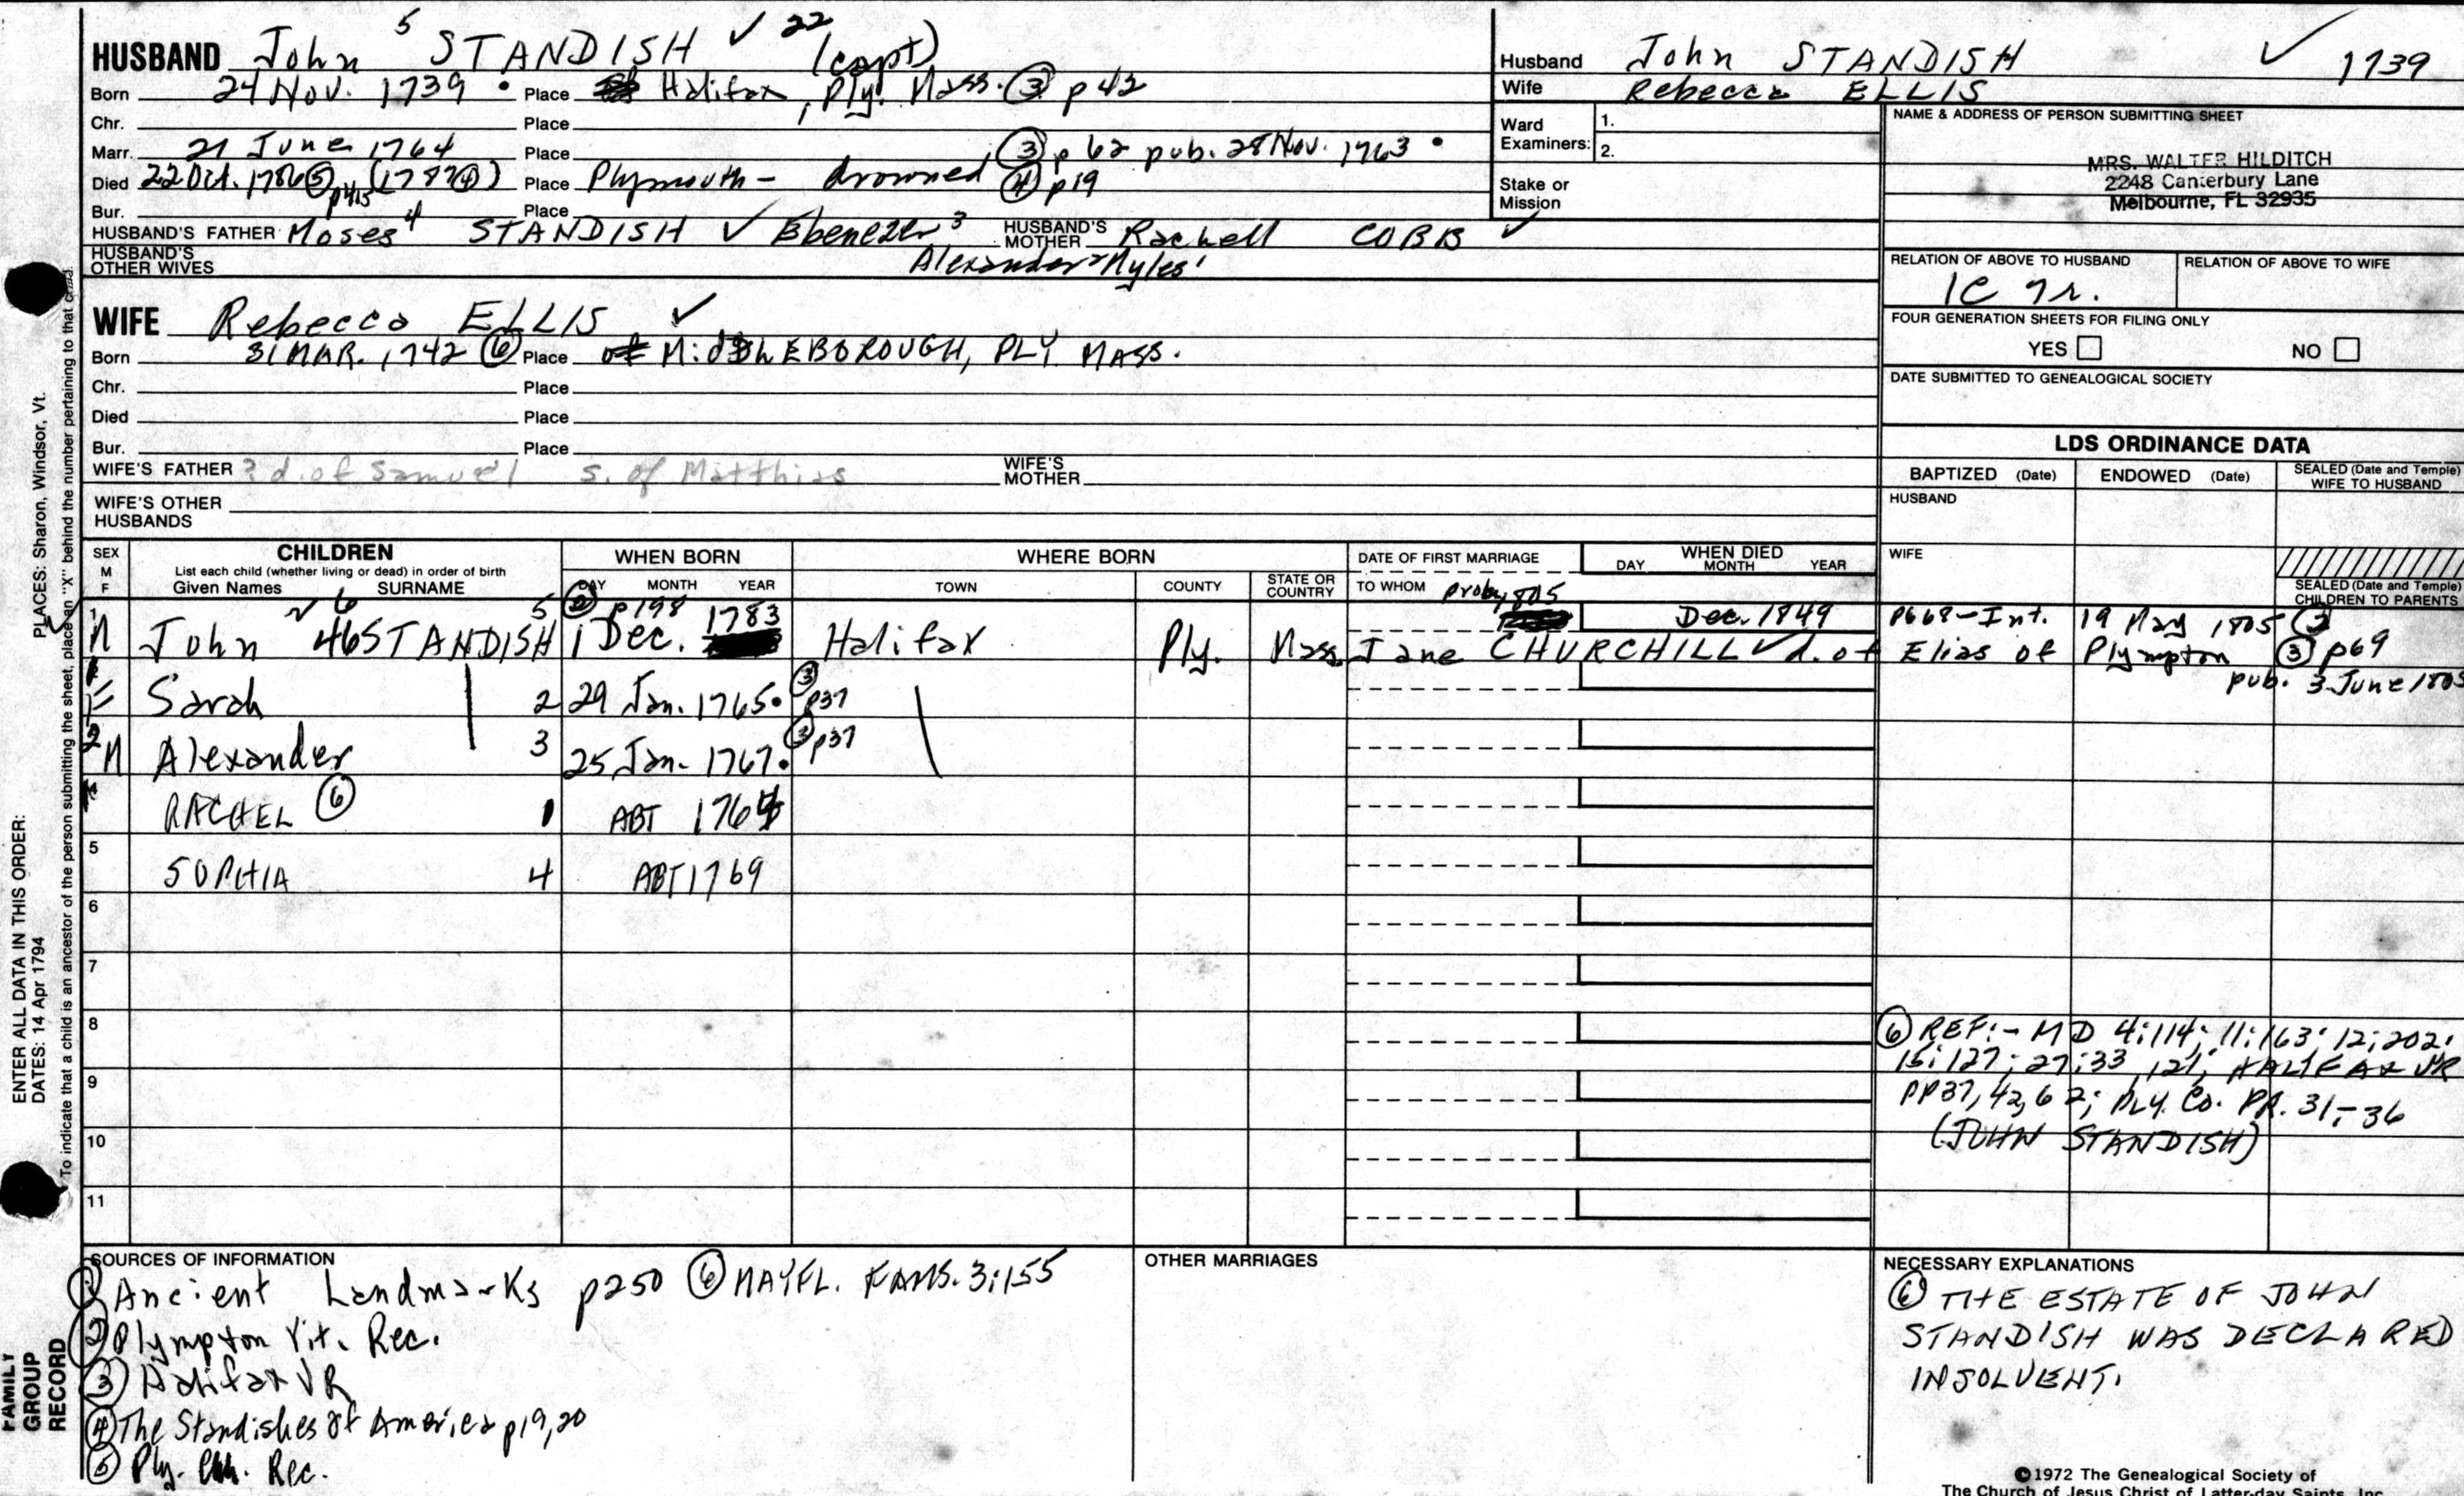 HUSBAND John 5 STANDISH ✓ 22 (capt)
Born 24 Nov. 1739 • Place Halifax, Ply. Mass. ③ p 42
Chr. Place
Marr. 21 June 1764 Place ③ p 62 pub. 28 Nov. 1763 •
Died 22 Oct. 1786 ⑤ p415 (1787 ④) Place Plymouth - drowned ④ p19
Bur. Place
HUSBAND'S FATHER Moses 4 STANDISH ✓ Ebenezer 3 HUSBAND'S MOTHER Rachell COBB ✓
HUSBAND'S OTHER WIVES Alexander 2 Myles 1
WIFE Rebecca ELLIS ✓
Born 31 MAR. 1742 ⑥ Place of MiddLEBOROUGH, PLY. MASS.
Chr. Place
Died Place
Bur. Place
WIFE'S FATHER ? d. of Samuel s. of Matthias WIFE'S MOTHER
WIFE'S OTHER HUSBANDS
Husband John STANDISH ✓ 1739
Wife Rebecca ELLIS
Ward Examiners: 1.
2.
Stake or Mission
NAME & ADDRESS OF PERSON SUBMITTING SHEET
MRS. WALTER HILDITCH
2248 Canterbury Lane
Melbourne, FL 32935
RELATION OF ABOVE TO HUSBAND RELATION OF ABOVE TO WIFE
1C 7r.
FOUR GENERATION SHEETS FOR FILING ONLY
YES NO
DATE SUBMITTED TO GENEALOGICAL SOCIETY
LDS ORDINANCE DATA
BAPTIZED (Date) ENDOWED (Date) SEALED (Date and Temple) WIFE TO HUSBAND
HUSBAND
WIFE
SEALED (Date and Temple) CHILDREN TO PARENTS
SEX M F CHILDREN WHEN BORN WHERE BORN DATE OF FIRST MARRIAGE WHEN DIED
List each child (whether living or dead) in order of birth
Given Names SURNAME DAY MONTH YEAR TOWN COUNTY STATE OR COUNTRY TO WHOM DAY MONTH YEAR
1 ✓ 6 5 ② p198 1783 prob 1805 Dec. 1849 p668-Int. 19 May 1805 ②
M John 46 STANDISH 1 Dec. Halifax Ply. Mass. Jane CHURCHILL ✓ d. of Elias of Plympton ③ p69
pub. 3 June 1805
F Sarah 2 29 Jan. 1765 • ③ p37
2 M Alexander 3 25 Jan. 1767 • ③ p37
RACHEL ⑥ 1 ABT 1764
5 SOPHIA 4 ABT 1769
6
7
8
9
10
11
⑥ REF:- MD 4:114; 11:163; 12:202;
15:127; 27:33, 121; HALIFAX VR
PP37, 42, 62; PLY. CO. PR. 31:-36
(JOHN STANDISH)
SOURCES OF INFORMATION
① Ancient Landmarks p250 ⑥ MAYFL. FAMS. 3:155
② Plympton Vit. Rec.
③ Halifax VR
④ The Standishes of America p19,20
⑤ Ply. Chh. Rec.
OTHER MARRIAGES
NECESSARY EXPLANATIONS
⑥ THE ESTATE OF JOHN
STANDISH WAS DECLARED
INSOLVENT.
©1972 The Genealogical Society of
The Church of Jesus Christ of Latter-day Saints, Inc.
ENTER ALL DATA IN THIS ORDER:
DATES: 14 Apr 1794
PLACES: Sharon, Windsor, Vt.
To indicate that a child is an ancestor of the person submitting the sheet, place an "X" behind the number pertaining to that child.
FAMILY GROUP RECORD